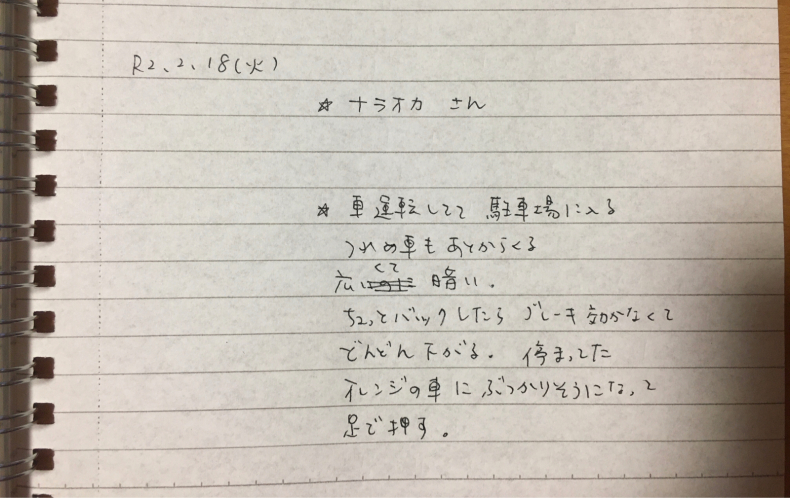 R2、2、18(火)
☆ ナラオカ さん
☆ 車運転してて 駐車場に入る
つれの車もあとからくる
広くて 暗い。
ちょっとバックしたら ブレーキ効かなくて
どんどん下がる。 停まってた
オレンジの車に ぶつかりそうになって
足で押す。